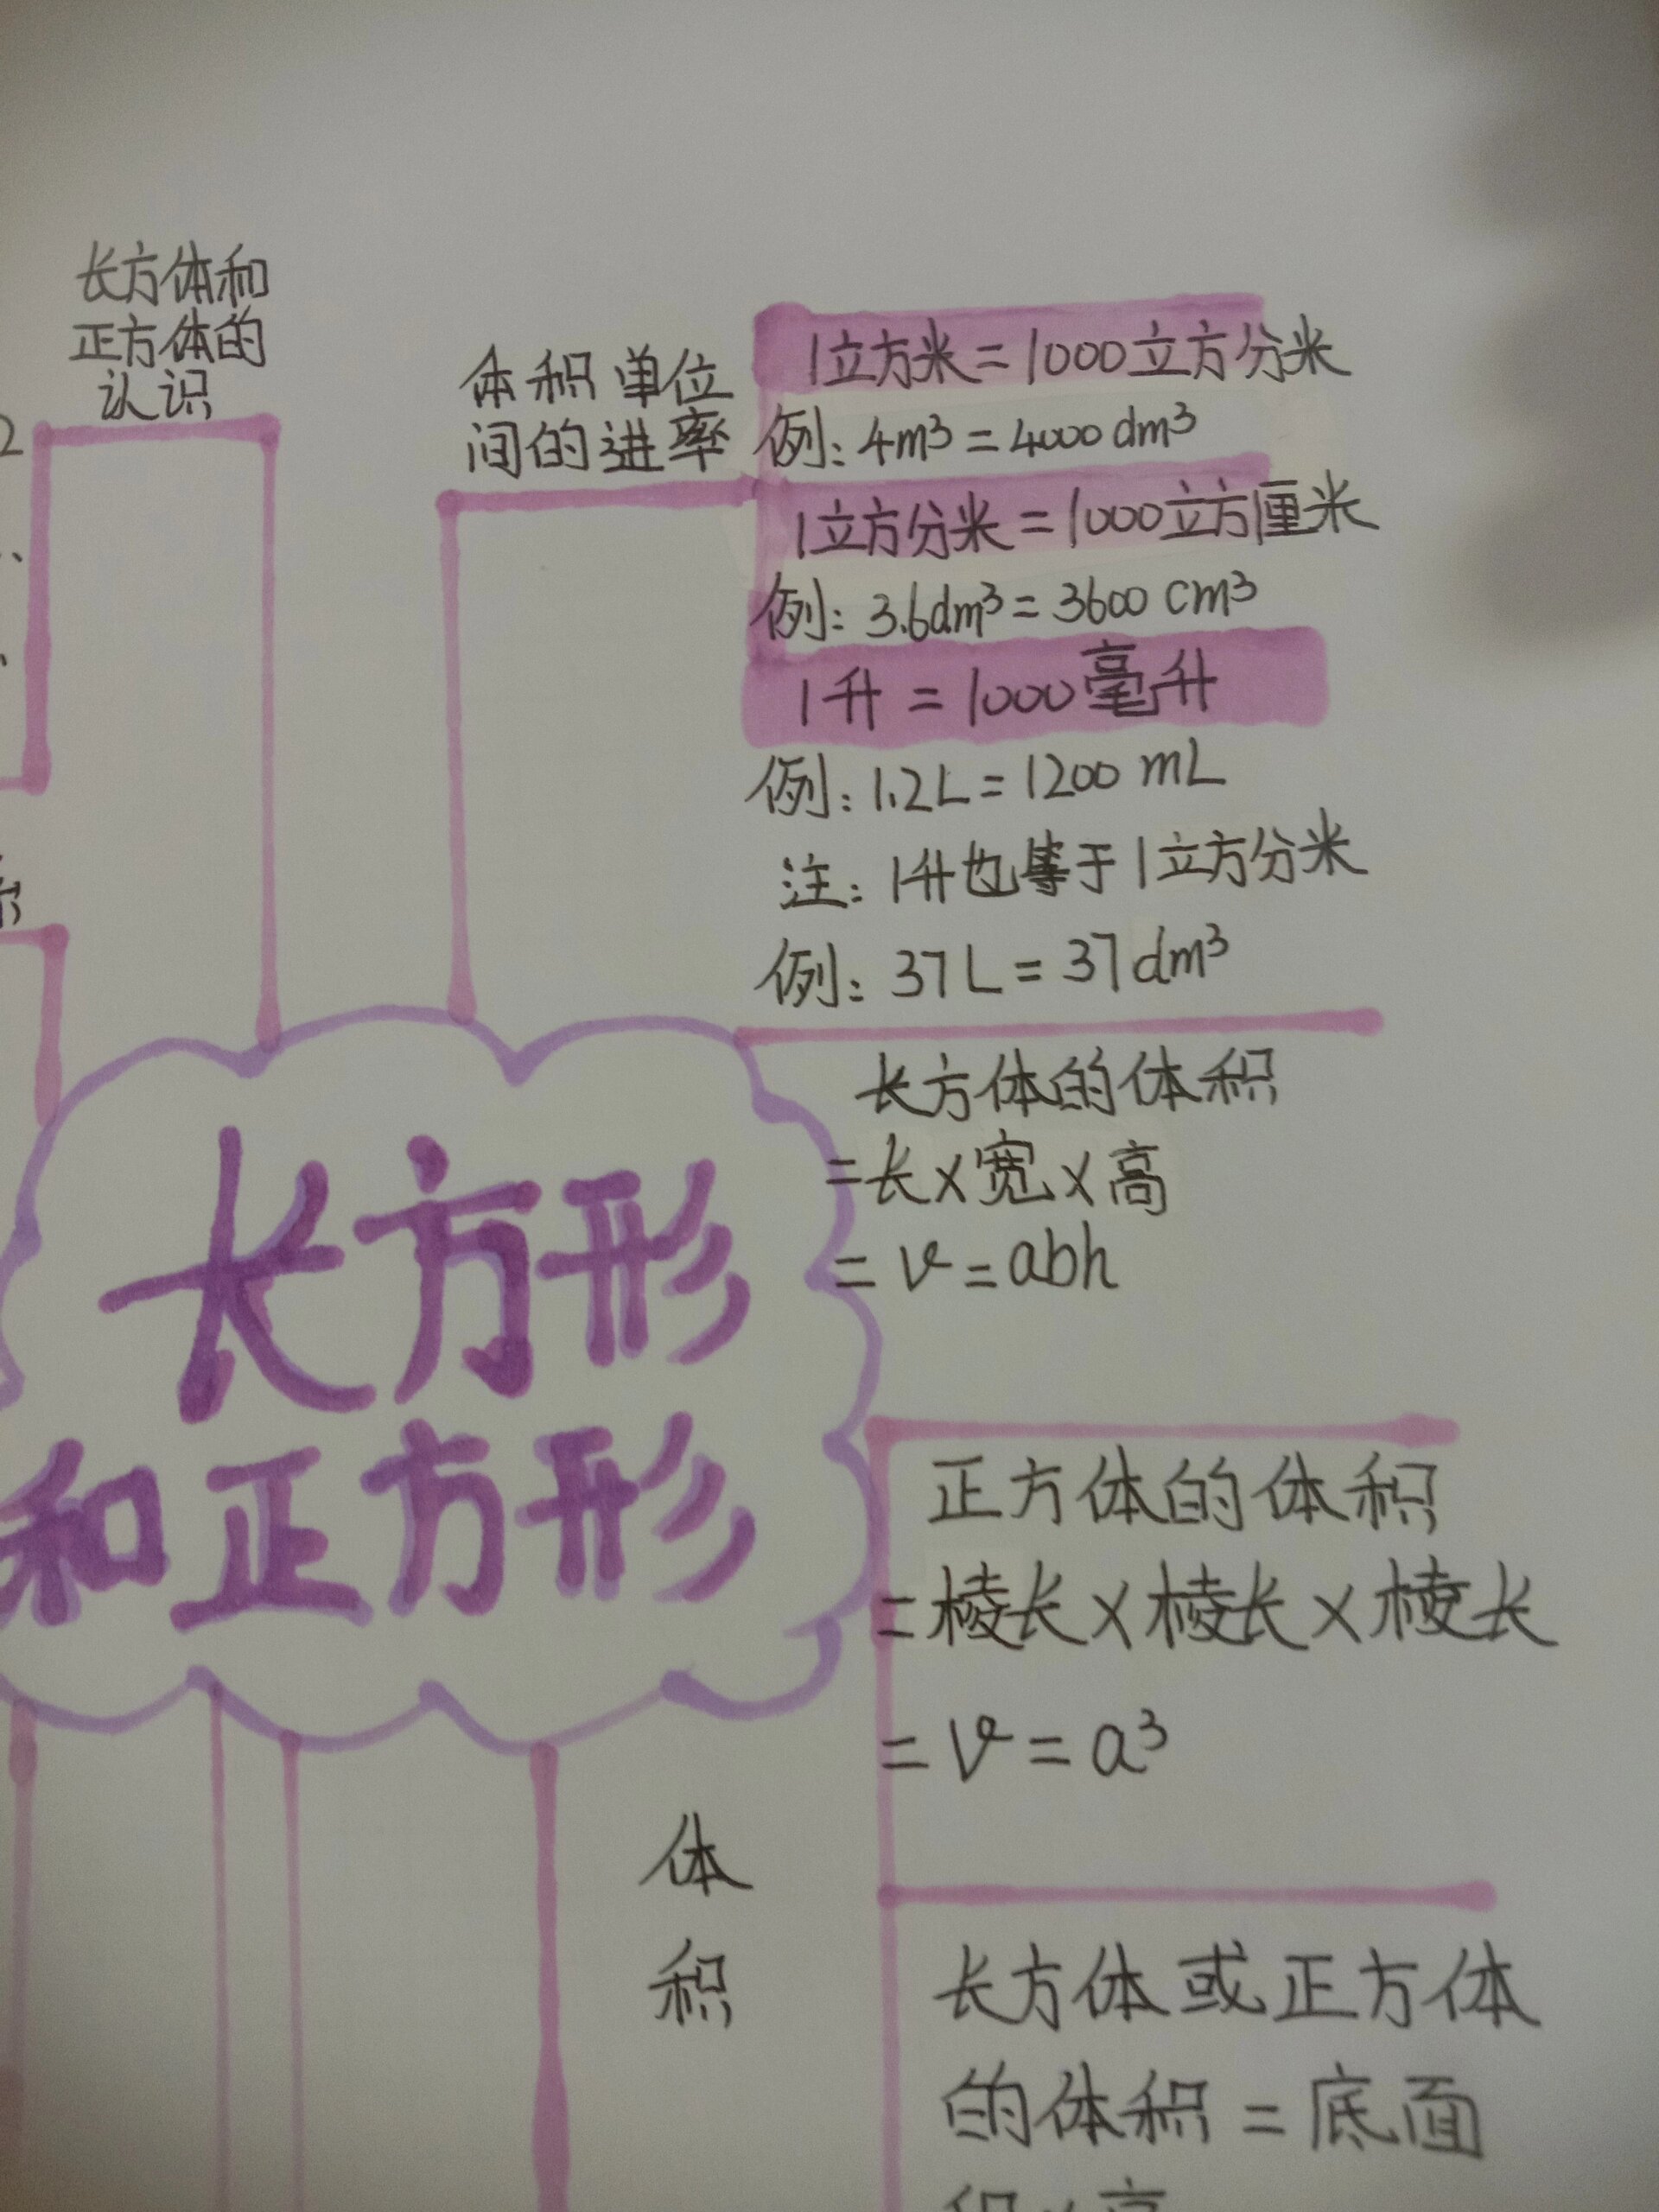 长方体和
正方体的
认识
2
体积单位
间的进率
1立方米=1000立方分米
例:4m³=4000dm³
1立方分米=1000立方厘米
例:3.6dm³=3600cm³
1升=1000毫升
例:1.2L=1200mL
注:1升也等于1立方分米
例:37L=37dm³
长方形
和正方形
长方体的体积
=长×宽×高
=V=abh
正方体的体积
=棱长×棱长×棱长
=V=a³
体
积
长方体或正方体
的体积=底面
积×高